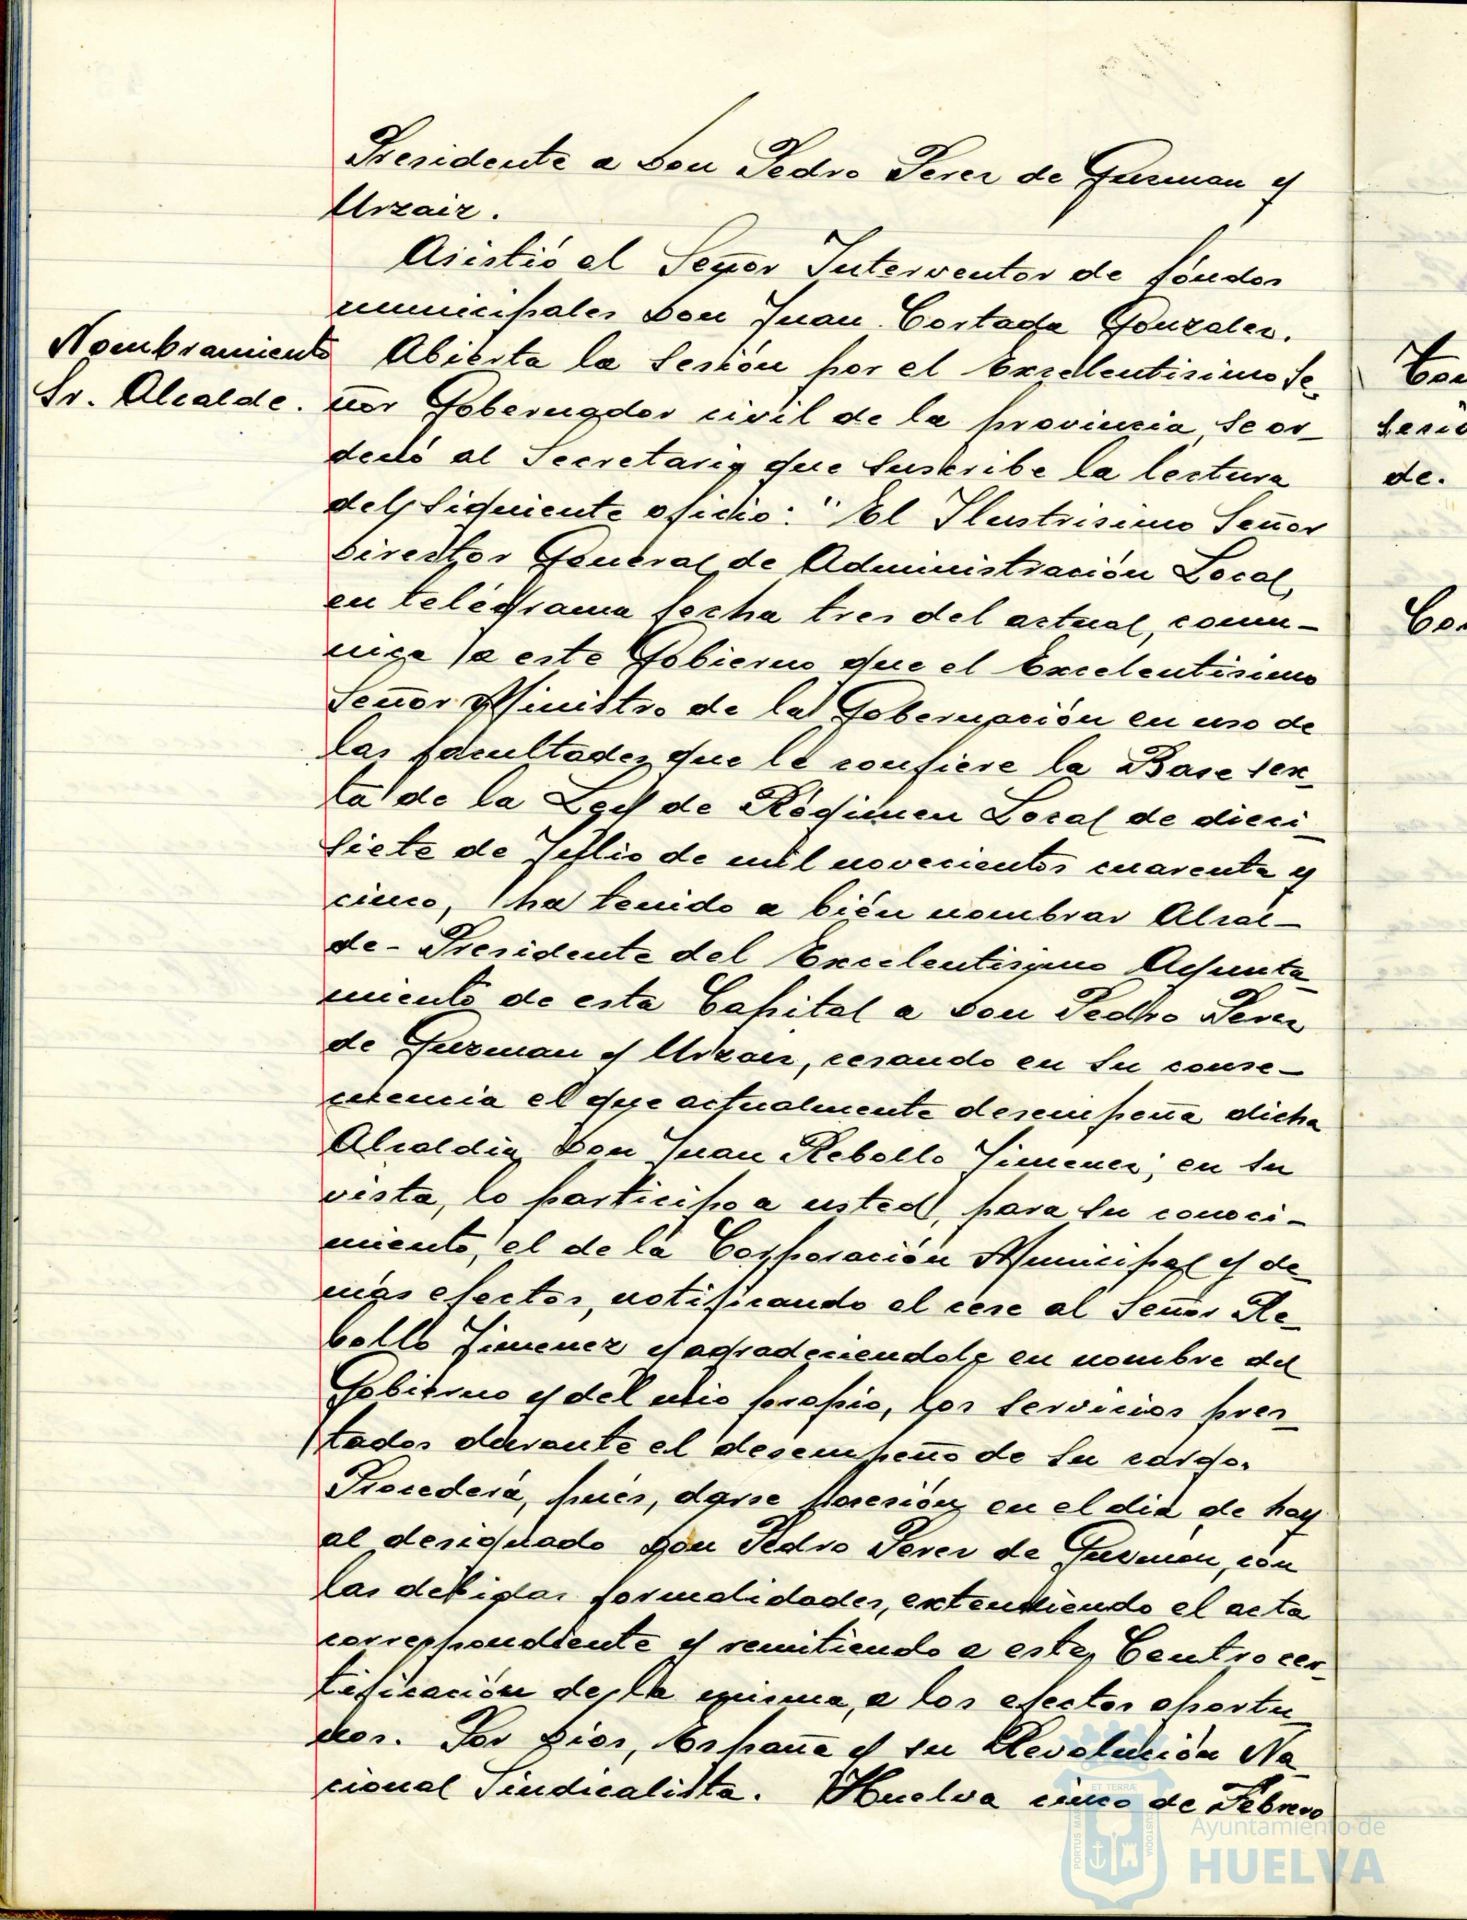 Presidente a Don Pedro Perez de Guzman y
Urzaiz.
Asistió el Señor Interventor de fóndos
municipales Don Juan Cortada Gonzalez.
Nombramiento
Sr. Alcalde.
Abierta la sesión por el Excelentisimo Se-
ñor Gobernador civil de la provincia, se or-
denó al Secretario que suscribe la lectura
del siguiente oficio: "El Ilustrisimo Señor
Director General de Administración Local,
en telégrama fecha tres del actual, comu-
nica a este Gobierno que el Excelentisimo
Señor Ministro de la Gobernación en uso de
las facultades que le confiere la Base sex-
ta de la Ley de Régimen Local de dieci-
siete de Julio de mil novecientos cuarenta y
cinco, ha tenido a bién nombrar Alcal-
de-Presidente del Excelentisimo Ayunta-
miento de esta Capital a Don Pedro Perez
de Guzman y Urzaiz, cesando en su conse-
cuencia el que actualmente desempeña dicha
Alcaldia Don Juan Rebollo Jimenez; en su
vista, lo participo a usted, para su conoci-
miento, el de la Corporación Municipal y de-
más efectos, notificando el cese al Señor Re-
bollo Jimenez y agradeciendole en nombre del
Gobierno y del mio propio, los servicios pres-
tados durante el desempeño de su cargo.
Procederá, pués, darse posesión en el dia de hoy
al designado Don Pedro Perez de Guzmán, con
las debidas formalidades, extendiendo el acta
correspondiente y remitiendo a este Centro cer-
tificación de la misma, a los efectos oportu-
nos. Por Dios, España y su Revolución Na-
cional Sindicalista. Huelva cinco de Febrero
de.
ET TERRÆ
CUSTODIA
Ayuntamiento de
HUELVA